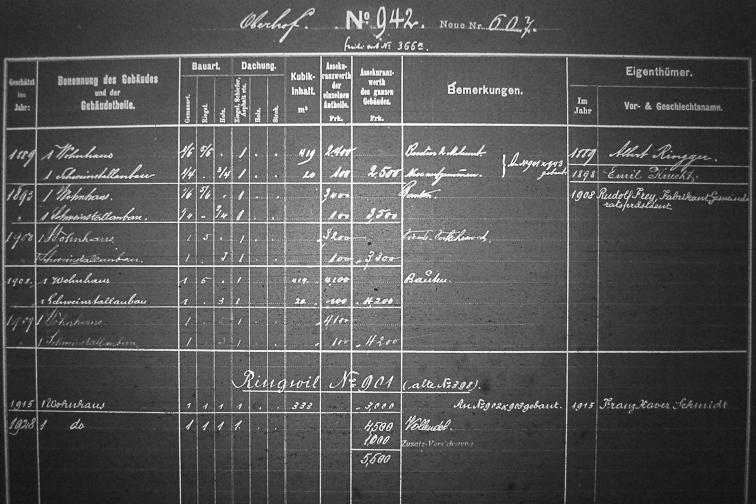 Oberhof. No 942. Neue Nr. 607.
Geschätzt im Jahr: Benennung des Gebäudes und der Gebäudetheile. Bauart. Dachung. Kubik-Inhalt. m³ Assekuranzwerth der einzelnen Antheile. Frk. Assekuranzwerth des ganzen Gebäudes. Frk. Bemerkungen. Eigenthümer.
Gemauert. Riegel. Holz. Ziegel, Schiefer, Asphalt etc. Holz. Stroh. Im Jahr Vor- & Geschlechtsname.
1889 1 Wohnhaus 1/6 5/6 . 1 . . 419 2400 1889 Albert Ringger.
" 1 Schweinstallanbau 1/4 . 3/4 1 . . 20 100 2,500 1898 Emil Knecht.
1893 1 Wohnhaus. 1/6 5/6 . 1 . . 3400 Bauten. 1908 Rudolf Frey, Fabrikant, Gemeind-
" 1 Schweinstallanbau. 1/4 . 3/4 1 . . 100 3,500 ratspräsident
1900 1 Wohnhaus. 1 5 . 1 . . 3200
" 1 Schweinstallanbau. 1 . 3 1 . . 100 3,300
1 Wohnhaus 1 5 . 1 . . 419 4100 Bauten.
" 1 Schweinstallanbau 1 . 3 1 . . 20 100 4,200
1909 1 Wohnhaus 1 . . 1 . . 4100
" 1 Schweinstallanbau 1 . 3 1 . . 100 4200
Ringwil No 901 (alte No 398).
1915 1 Wohnhaus 1 1 1 1 . . 333 3,000 An No 902 & 903 gebaut. 1915 Franz Xaver Schmidt
1928 1 do 1 1 1 1 . . 4,500 Vollendet.
1,000 Zusatz-Versicherung
5,500